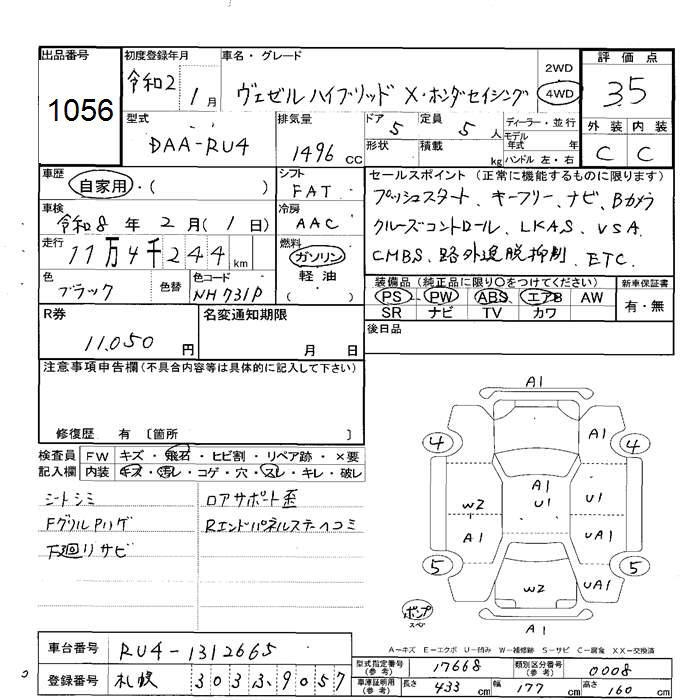 出品番号 初度登録年月 車名・グレード 評価点
1056 令和2 1月 ヴェゼルハイブリッド X・ホンダセイシング 2WD 4WD 3.5
型式 排気量 ドア 5 定員 5人 ディーラー・並行 外装 内装
DAA-RU4 1496 CC 形状 積載 kg モデル年式 年 ハンドル 左・右 C C
車歴 自家用・( ) シフト FAT セールスポイント (正常に機能するものに限ります)
車検 令和8年2月(1日) 冷房 AAC プッシュスタート、キーフリー、ナビ、Bカメラ
走行 11万4千244km 燃料 ガソリン 軽油 ( ) クルーズコントロール、LKAS、VSA、
CMBS、路外逸脱抑制、ETC.
色 ブラック 色替 色コード NH731P 装備品 (純正品に限り○をつけてください) 新車保証書
PS PW ABS エアB AW 有・無
SR ナビ TV カワ
R券 11,050円 名変通知期限 月 日 後日品
注意事項申告欄(不具合内容等は具体的に記入して下さい)
修復歴 有 〔箇所 〕
検査員 FW キズ・飛石・ヒビ割・リペア跡・×要
記入欄 内装 キズ・汚レ・コゲ・穴・スレ・キレ・破レ
シートシミ ロアサポート歪
FグリルPハゲ Rエンドパネルステーヘコミ
下廻リサビ
A1
4 A1 4
A1 U1
W2 U1
A1 UA1
5 W2 UA1 5
ポンプ スペア
A1
A-キズ E-エクボ U-凹み W-補修跡 S-サビ C-腐食 XX-交換済
車台番号 RU4-1312665
登録番号 札幌 303 ふ 9057
型式指定番号(参考) 17668 類別区分番号(参考) 0008
車庫証明用(参考) 長さ 433cm 幅 177cm 高さ 160cm